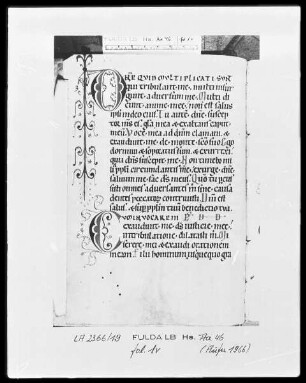 NE QUID MULTIPLICATI SŪT
qui tribulant me · multi insur
gunt adversum me · Multi di
cunt anime mee · non est salus
ipsi in deo ei(us) · Tu autē dñe · suscep
tor m(eu)s es · gľia mea & exaltans caput
meū · Voce mea ad dñm clamavi · &
exaudivit me · de monte scō suo · Ego
dormivi · & soporatus sum · & exurrexi
quia dñs suscepit me · Non timebo mi
lia ppli circumdantis me · exurge dñe
salvum me fac d(eu)s meus · Qm̄ tu p(er)cus
sisti omnes adversantes m(ihi) sine causa
dentes peccatorū contrivisti · Dñi est
salus · & sup(er) pplm̄ tuū benedictio tua
exaudivit me · d(eu)s iusticie mee ·
In tribulatione · dilatasti m(ihi) · Mi
serere mei · & exaudi orationem
meam · filii hominum usquequo gra
LA 2366/19 FULDA LB Hs. Aa 46
fol. 1v (Pfeifer 1966)